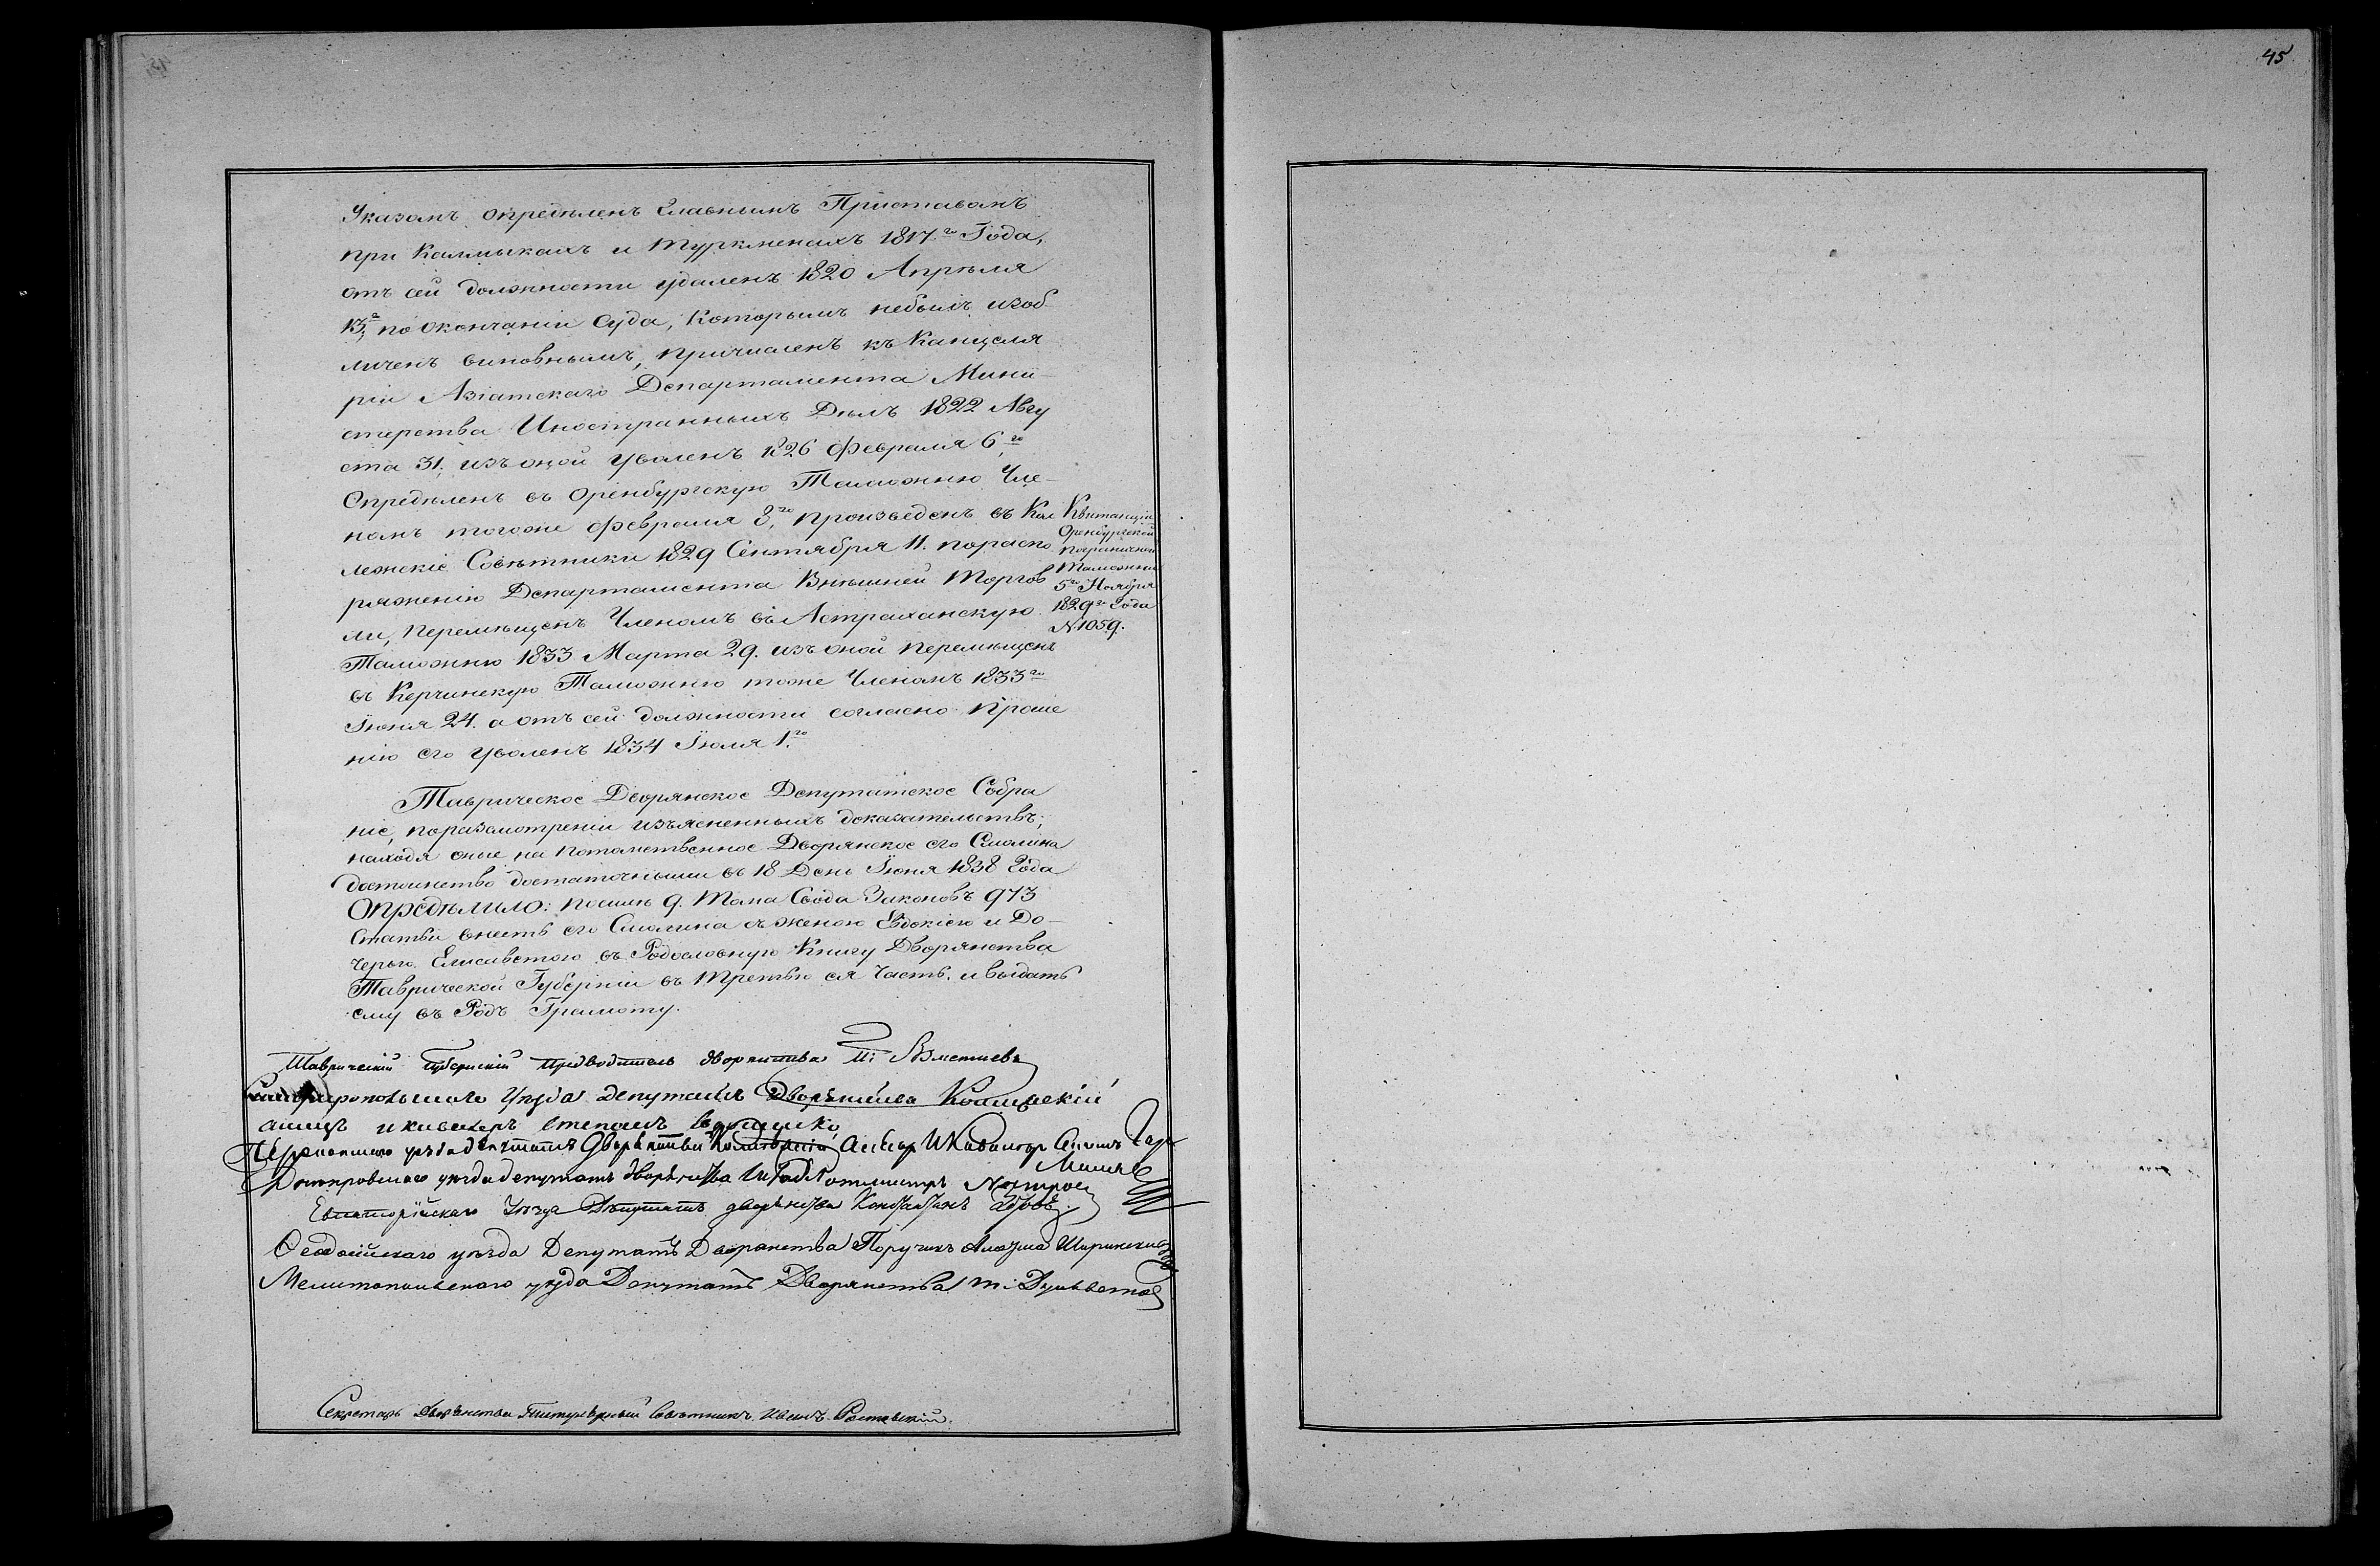 45
Указомъ опредѣленъ Главнымъ Приставомъ
при Калмыкахъ и Туркменахъ 1817.го Года,
отъ сей должности удаленъ 1820 Апрѣля
13, по окончаніи Суда, которымъ небылъ изоб
личенъ виновнымъ, причисленъ къ Канцеля
ріи Азіатскаго Департамента Мини-
стерства Иностранныхъ Дѣлъ 1822 Авгу
ста 31; изъ оной уволенъ 1826 Февраля 6.го
Опредѣленъ въ Оренбургскую Таможню Чле-
номъ тогоже Февраля 8.го, произведенъ въ Кол
лежскіе Совѣтники 1829 Сентября 11. пораспо
ряженію Департамента Внѣшней Торгов
ли, перемѣщенъ Членомъ въ Астраханскую
Таможню 1833 Марта 29. изъ оной перемѣщенъ
въ Керчинскую Таможню тоже Членомъ 1833го
Іюня 24. а отъ сей должности согласно проше
нію его уволенъ 1834 Іюля 1.го
Квитанція
Оренбургской
пограничной
Таможни
5го Ноября
1829го Года
N. 1059.
Таврическое Дворянское Депутатское Собра
ніе, поразсмотреніи изъясненныхъ доказательствъ,
находя оные на потомственное Дворянское его Смолина
достоинство достаточными въ 18 День Іюня 1838 Года
Опредѣлило: посилѣ 9. Тома Свода Законовъ 973
Статьи внесть его Смолина съ женою Евдокіею и До-
черью Елисаветою въ Родословную Книгу Дворянства
Таврической Губерніи въ третью ея часть, и выдать
ему въ Родъ Грамоту.
Таврическій Губернскій Предводитель дворянства
Симферопольскаго Уѣзда Депутатъ Дворянства
и кавалеръ Степанъ
Перекопскаго уѣзда депутатъ Дворянства и Кавалеръ
Днепровскаго уѣзда депутатъ дворянства Штабъ Ротмистръ
Евпаторійскаго Уѣзда Депутатъ дворянства Константинъ
Феодосійскаго уѣзда Депутатъ Дворянства Поручикъ Ширинскій
Мелитопольскаго уѣзда Депутатъ Дворянства
Секретарь Дворянства Титулярный Совѣтникъ Иванъ